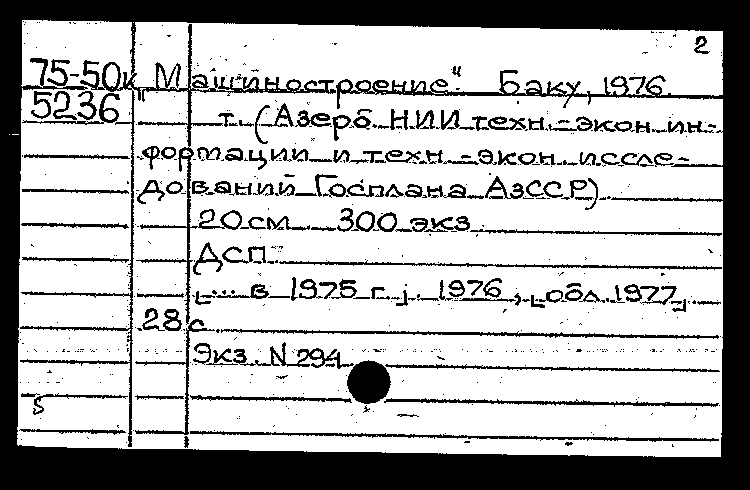 2
75-50к Машиностроение". Баку, 1976.
5236 "
т. (Азерб. НИИ техн.-экон. ин-
формации и техн.-экон. иссле-
дований Госплана АзССР)
20 см 300 экз.
ДСП
[... в 1975 г.]. 1976, [обл. 1977]
28 с
Экз. N 294
S